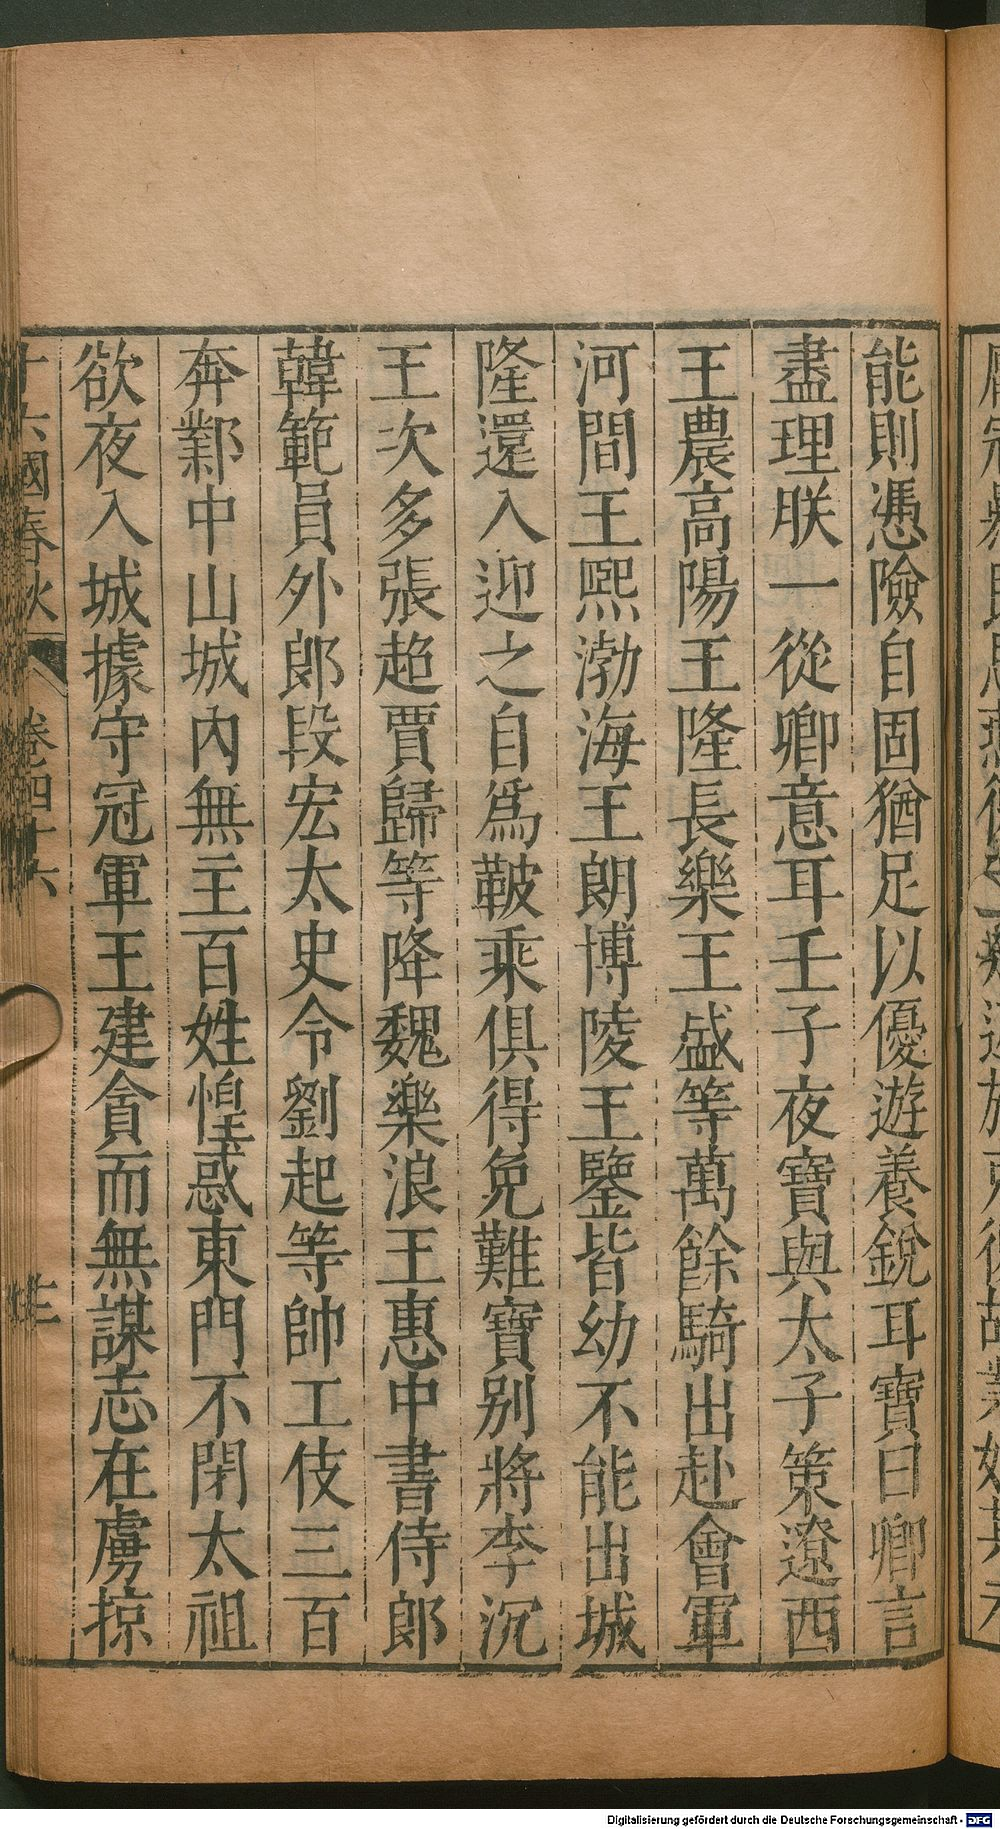 能則憑險自固猶足以優遊養銳耳寶曰卿言
盡理朕一從卿意耳壬子夜寶與太子策遼西
王農高陽王隆長樂王盛等萬餘騎出赴會軍
河間王熙渤海王朗博陵王鑒皆幼不能出城
隆還入迎之自爲鞁乘俱得免難寶别將李沉
王次多張超賈歸等降魏樂浪王惠中書侍郎
韓範員外郎段宏太史令劉起等帥工伎三百
奔鄴中山城內無主百姓惶惑東門不閉太祖
欲夜入城據守冠軍王建貪而無謀志在虜掠
十六國春秋 卷四十六
Digitalisierung gefördert durch die Deutsche Forschungsgemeinschaft - DFG